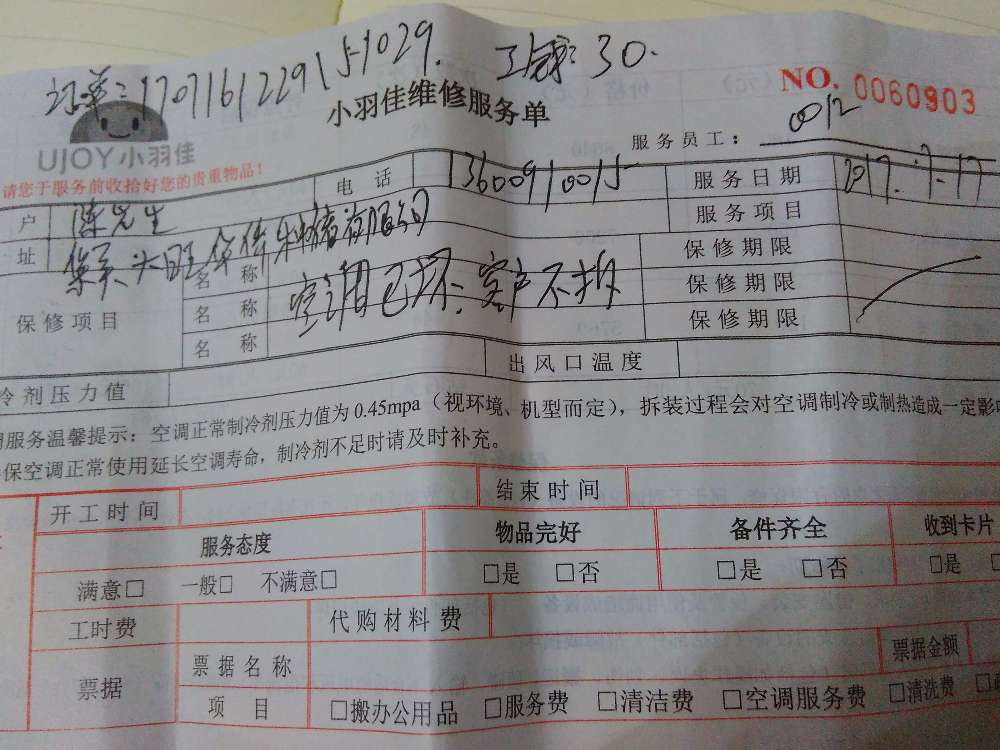 订单:170716122915-1029. 工号: 30.
小羽佳维修服务单
NO. 0060903
UJOY小羽佳
服务员工: 0012
请您于服务前收拾好您的贵重物品!
户 陈先生 电话 13600910015 服务日期 2017.7.17
址 有限公司 服务项目
保修项目 名称 空调已坏,客户不拆 保修期限
名称 保修期限
名称 保修期限
冷剂压力值 出风口温度
服务温馨提示:空调正常制冷剂压力值为0.45mpa(视环境、机型而定),拆装过程会对空调制冷或制热造成一定影响
保空调正常使用延长空调寿命,制冷剂不足时请及时补充。
开工时间 结束时间
服务态度 物品完好 备件齐全 收到卡片
满意□ 一般□ 不满意□ □是 □否 □是 □否 □是
工时费 代购材料费
票据 票据名称 票据金额
项目 □搬办公用品 □服务费 □清洁费 □空调服务费 □清洗费